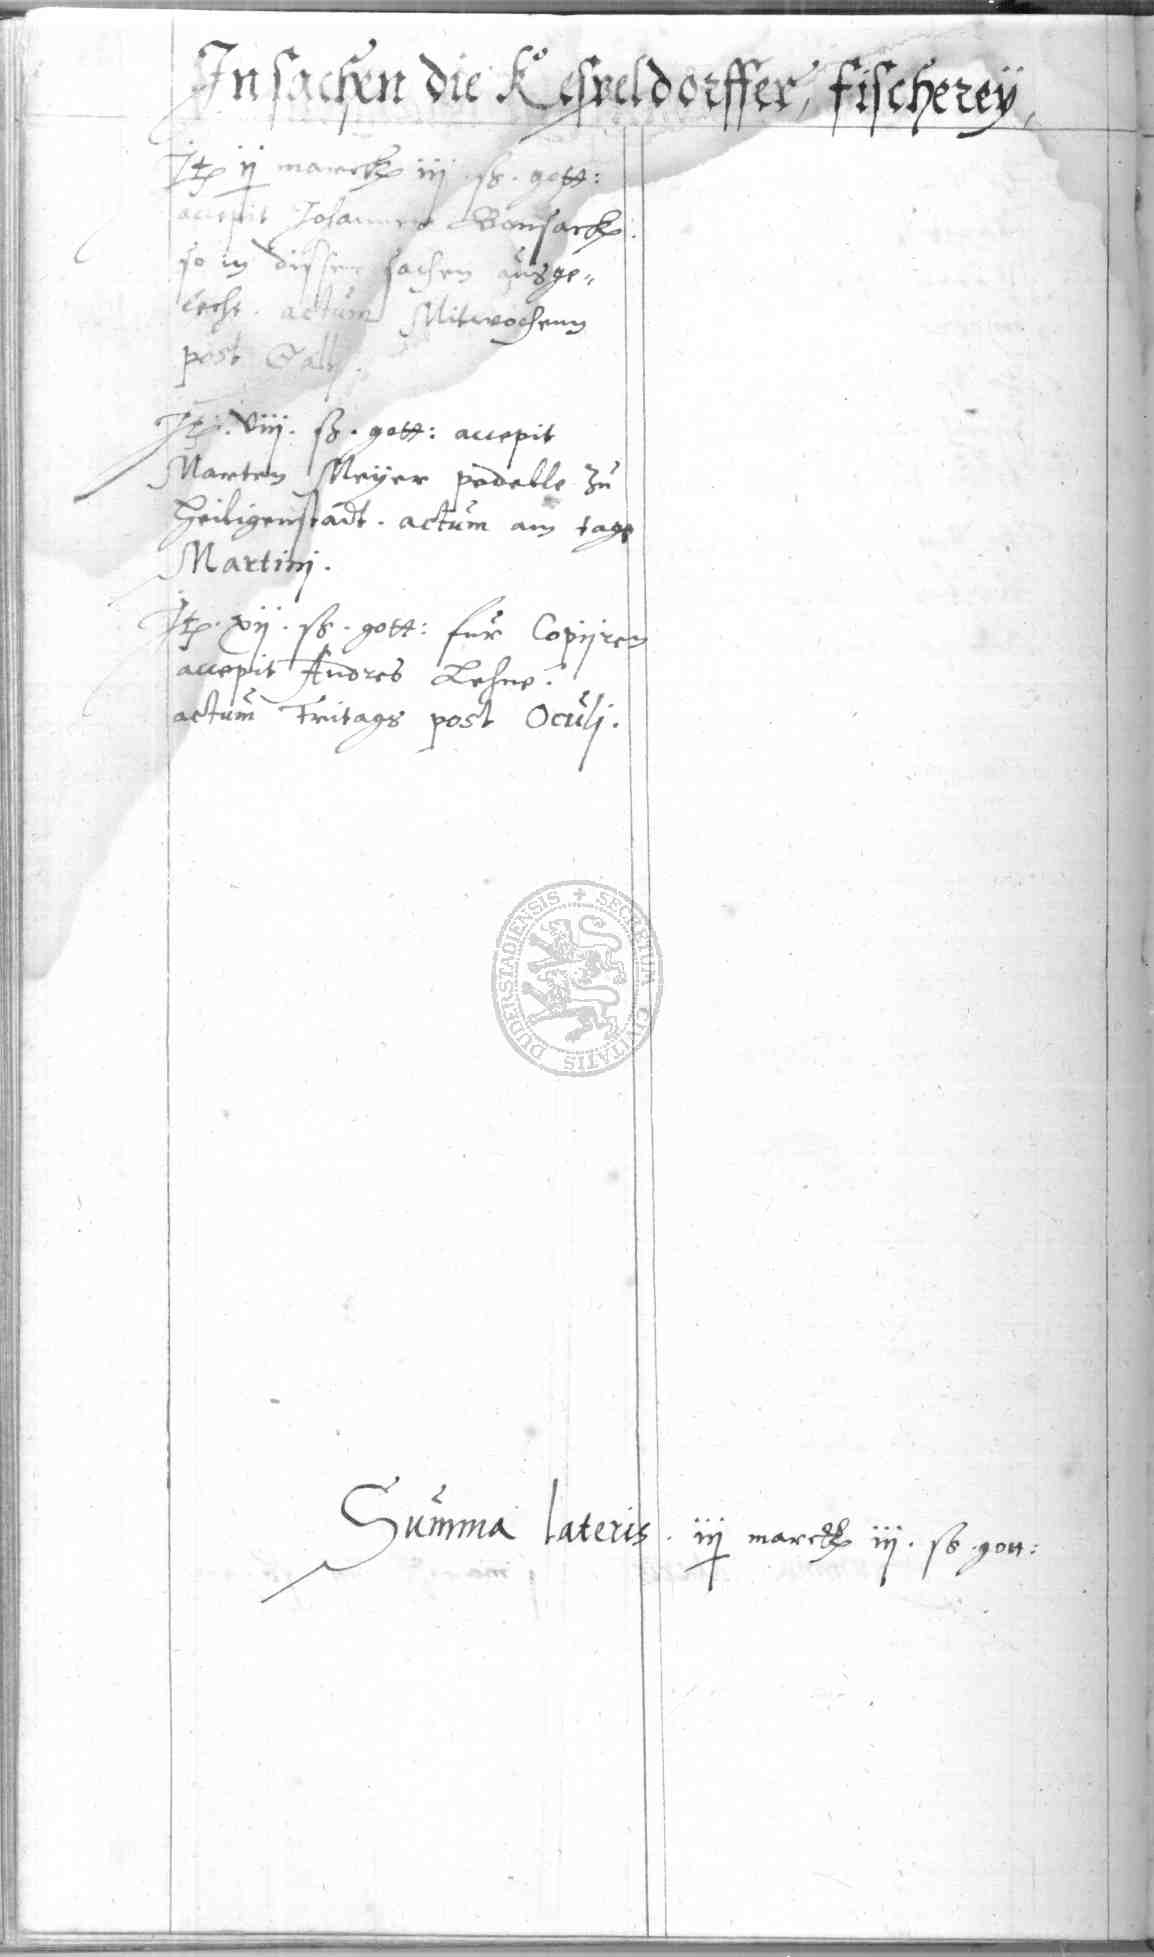 In sachen die Kespeldorffer, fischerey,
Itē ij marck iij ſß. gott:
accepit Johannes Bonsack
so in disser sachen ausge„
lecht. actum Mitwochenn
post Galli.
Itē. viij. ſß. gott: accepit
Marten Meyer pedelle zu
Heiligenstadt. actum am tage
Martinj.
Itē. xij. ſß. gott: fur Copijren
accepit Andres Lehne.
actum Fritags post Oculj.
SECRETUM CIVITATIS DUDERSTADIENSIS
Summa lateris. iij marck iij. ſß. gott: